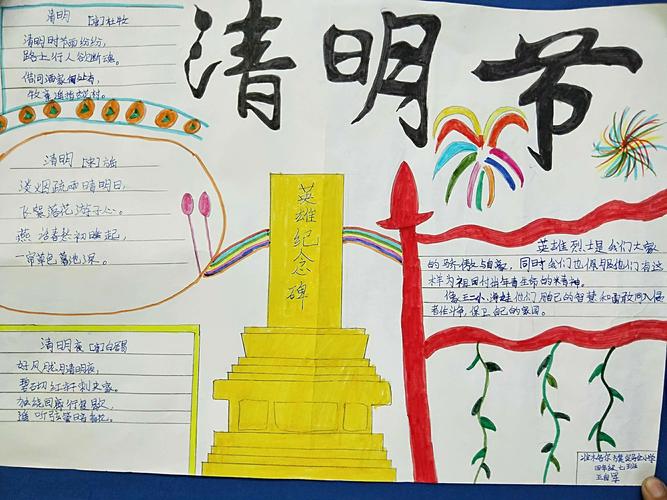 清明节
清明 [唐]杜牧
清明时节雨纷纷,
路上行人欲断魂。
借问酒家何处有,
牧童遥指杏花村。
清明 [宋]
淡烟疏雨清明日,
飞絮落花游子心。
清明夜 [唐]白居易
好风胧月清明夜,
碧砌红轩刺史家。
独绕回廊行复歇,
遥听弦管暗看花。
英雄纪念碑
英雄烈士是我们大家
的骄傲与自豪,同时我们也佩服他们有这
样为祖国付出年青生命的精神。
像王二小、海娃他们用自己的智慧和勇敢同
作斗争,保卫自己的家园。
四年级七班